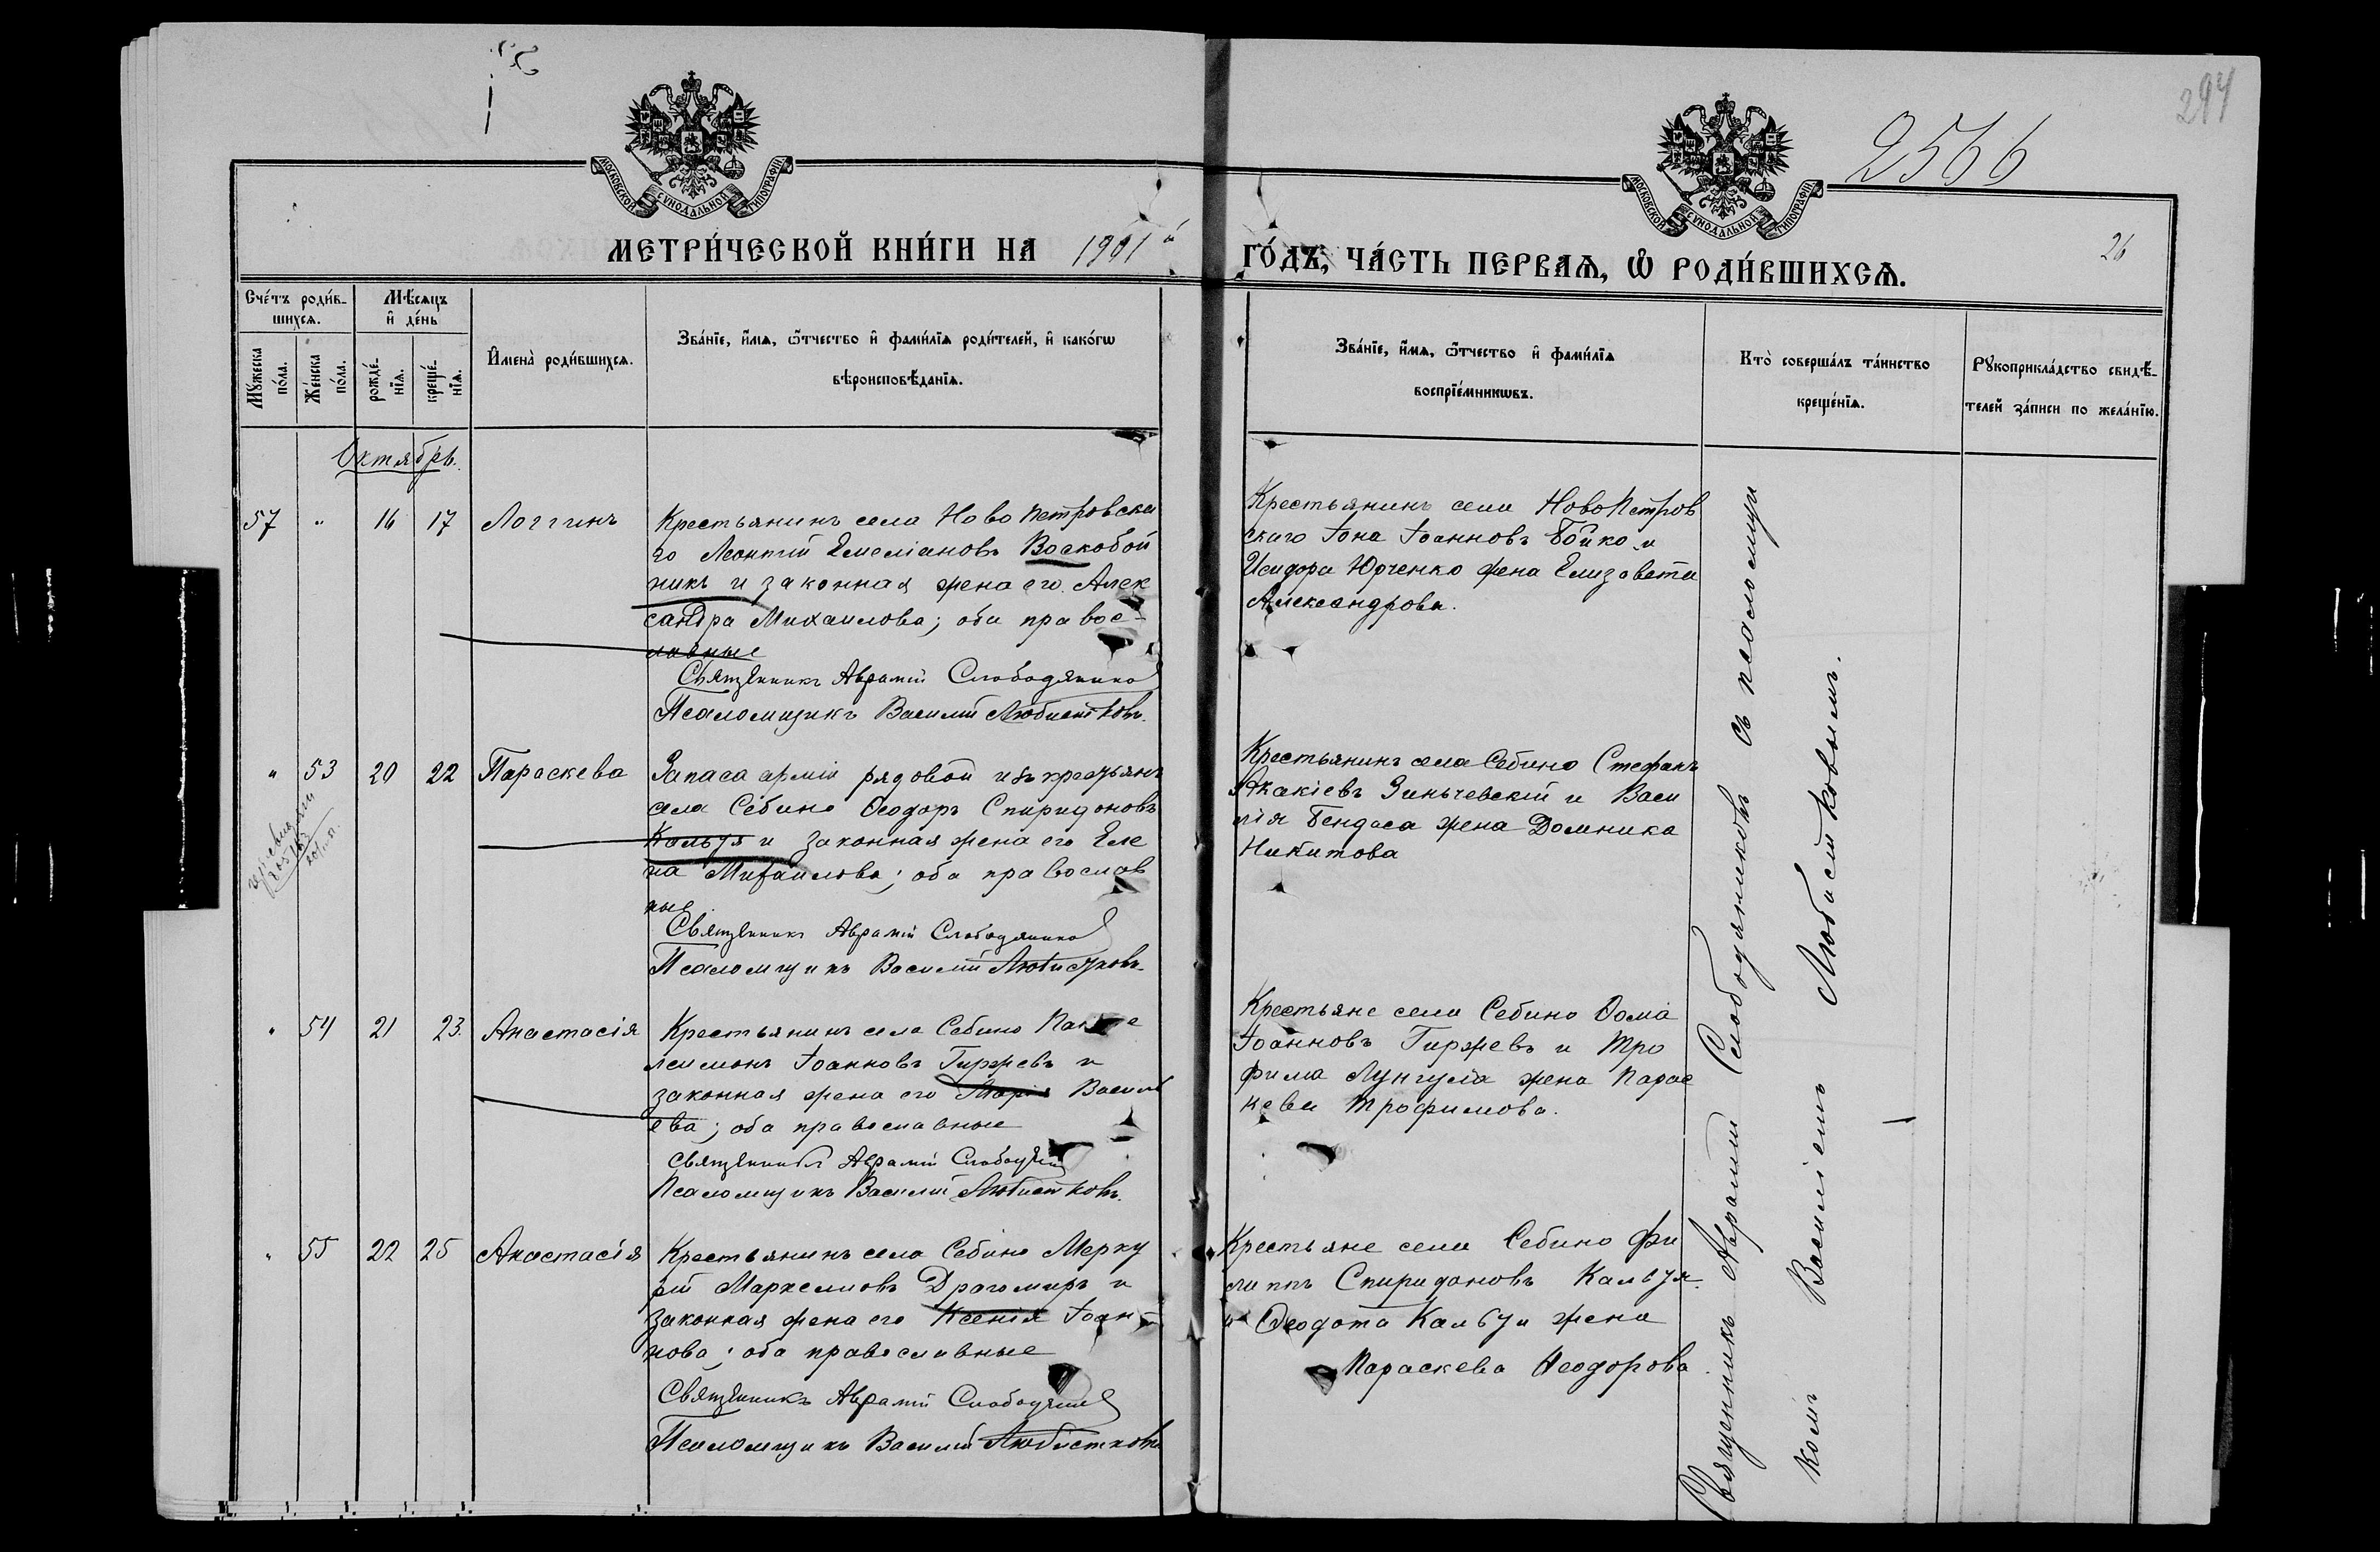 294
2566
26
МОСКОВСКОЙ СѴНОДАЛЬНОЙ ТИПОГРАФІИ
МОСКОВСКОЙ СѴНОДАЛЬНОЙ ТИПОГРАФІИ
МЕТРИ́ЧЕСКОЙ КНИ́ГИ НА 1901й
ГО́ДЪ, ЧА́СТЬ ПЕРВАѦ, Ѡ҆ РОДИ́ВШИХСѦ.
Сче́тъ роди́в-
шихсѧ.
Мꙋ́жеска
по́ла.
Же́нска
по́ла.
Мѣ́сяцъ
и҆ де́нь
рожде́-
нїѧ.
креще́-
нїѧ.
И҆мена̀ роди́вшихсѧ.
Зва́нїе, и҆́мѧ, ѻ҆́тчество и҆ фами́лїѧ роди́телей, и҆ како́гѡ
вѣроисповѣ́данїѧ.
Зва́нїе, и҆́мѧ, ѻ҆́тчество и҆ фами́лїѧ
воспрїе́мникѡвъ.
Кто̀ соверша́лъ та́инство
креще́нїѧ.
Рꙋкоприкла́дство свидѣ́-
телей за́писи по жела́нїю.
Октябрь.
57 " 16 17 Логгинъ
Крестьянинъ села Ново Петровска
го Леонтій Емеліановъ Воскобой
никъ и законная жена его Алек
сандра Михаилова; оба правос-
лавные
Священникъ Аврамій Слободяников
Псаломщикъ Василій Любистковъ.
Крестьянинъ села НовоПетров
скаго Іона Іоанновъ Бойко и
Исидора Юрченко жена Елизавета
Александрова.
" 53 20 22 Параскева
Запаса арміи рядовой изъ крестьянъ
села Себино Ѳеодоръ Спиридоновъ
Кальуя и законная жена его Еле
на Михаилова; оба православ
ные
Священникъ Аврамій Слободяников
Псаломщикъ Василій Любистковъ.
Крестьянинъ села Себино Стефанъ
Акакіевъ Зиньчевскій и Васи
лія Бендаса жена Домника
Никитова
" 54 21 23. Анастасія
Крестьянинъ села Себино Пан
леимонъ Іоанновъ Гиржевъ и
законная жена его Марія Василь
ева; оба православные
Священникъ Аврамій
Псаломщикъ Василій Любистковъ.
Крестьяне села Себино Ѳома
Іоанновъ Гиржевъ и Тро
фима Лунгула жена Парас
кева Трофимова.
" 55 22 25 Анастасія
Крестьянинъ села Себино Мерку
рій Маркелловъ Драгомиръ и
законная жена его Ксенія Іоан-
нова; оба православные
Священникъ Аврамій
Псаломщикъ Василій Любистковъ
Крестьяне села Себино Фи
липпъ Спиридоновъ Кальуя
и Ѳеодота Кальуи жена
Параскева Ѳеодорова
Священникъ Аврамій Слободяниковъ съ псаломщи
комъ Василіемъ Любистковымъ.